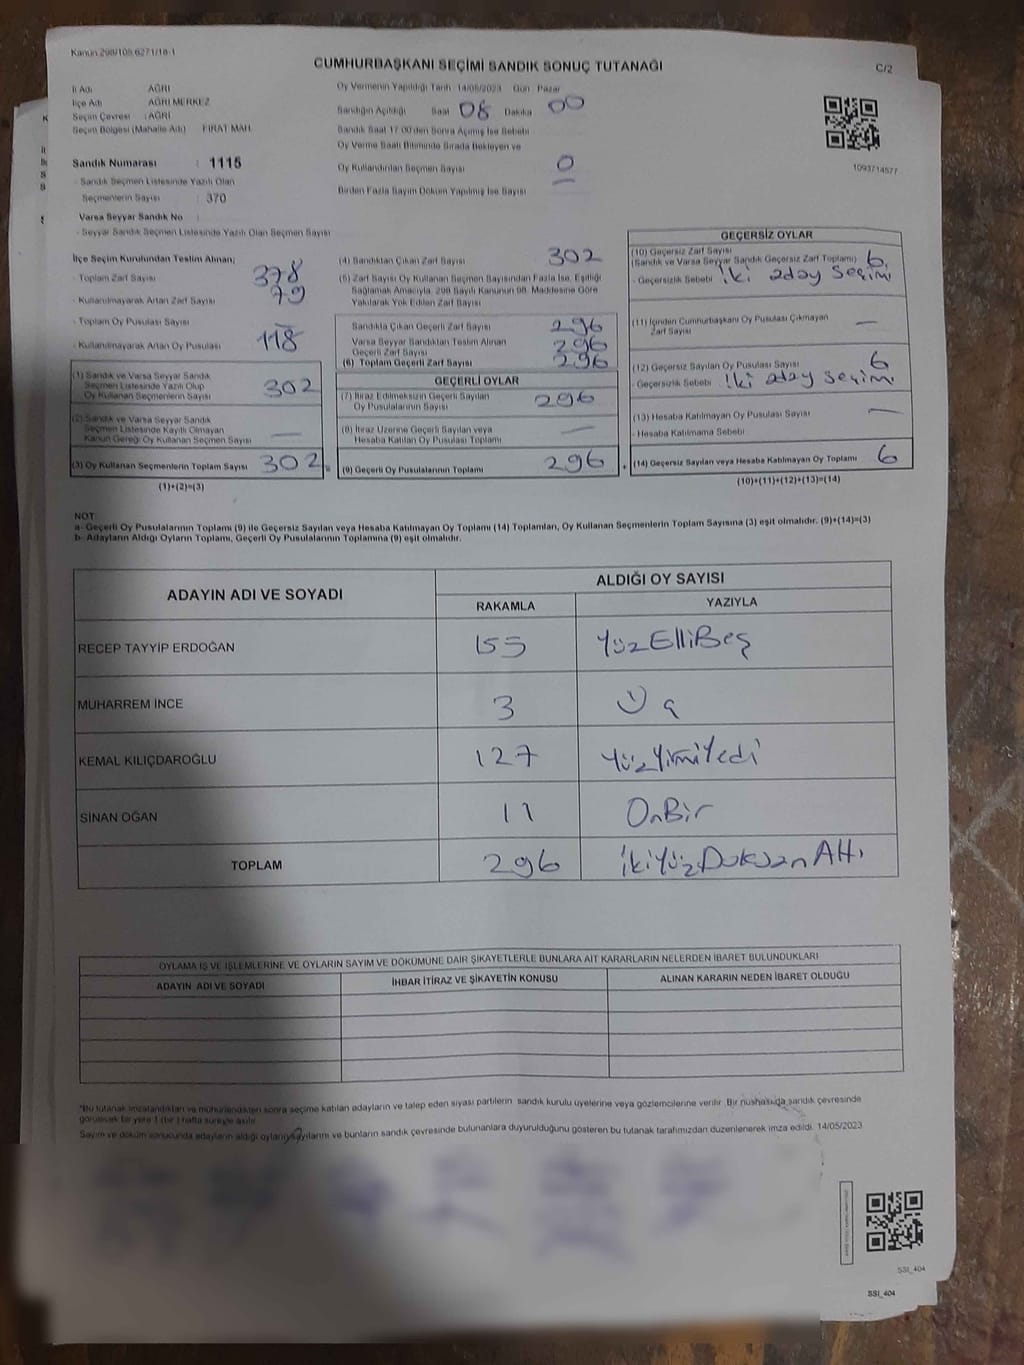 Kanun 298/105 6271/18-1
CUMHURBAŞKANI SEÇİMİ SANDIK SONUÇ TUTANAĞI
C/2
İl Adı AĞRI
İlçe Adı AĞRI MERKEZ
Seçim Çevresi : AĞRI
Seçim Bölgesi (Mahalle Adı) FIRAT MAH.
Sandık Numarası : 1115
- Sandık Seçmen Listesinde Yazılı Olan
Seçmenlerin Sayısı : 370
Varsa Seyyar Sandık No :
- Seyyar Sandık Seçmen Listesinde Yazılı Olan Seçmen Sayısı
Oy Vermenin Yapıldığı Tarih 14/05/2023 Gün Pazar
Sandığın Açıldığı Saat 08 Dakika 00
Sandık Saat 17.00'den Sonra Açılmış İse Sebebi
Oy Verme Saati Bitiminde Sırada Bekleyen ve
Oy Kullandırılan Seçmen Sayısı 0
Birden Fazla Sayım Döküm Yapılmış İse Sayısı —
1093714577
İlçe Seçim Kurulundan Teslim Alınan;
- Toplam Zarf Sayısı 378
- Kullanılmayarak Artan Zarf Sayısı 79
- Toplam Oy Pusulası Sayısı
- Kullanılmayarak Artan Oy Pusulası 118
(1) Sandık ve Varsa Seyyar Sandık
Seçmen Listesinde Yazılı Olup
Oy Kullanan Seçmenlerin Sayısı 302
(2) Sandık ve Varsa Seyyar Sandık
Seçmen Listesinde Kayıtlı Olmayan
Kanun Gereği Oy Kullanan Seçmen Sayısı —
(3) Oy Kullanan Seçmenlerin Toplam Sayısı 302
(1)+(2)=(3)
(4) Sandıktan Çıkan Zarf Sayısı 302
(5) Zarf Sayısı Oy Kullanan Seçmen Sayısından Fazla İse, Eşitliği
Sağlamak Amacıyla, 298 Sayılı Kanunun 98. Maddesine Göre
Yakılarak Yok Edilen Zarf Sayısı
Sandıkta Çıkan Geçerli Zarf Sayısı 296
Varsa Seyyar Sandıktan Teslim Alınan
Geçerli Zarf Sayısı 296
(6) Toplam Geçerli Zarf Sayısı 296
GEÇERLİ OYLAR
(7) İtiraz Edilmeksizin Geçerli Sayılan
Oy Pusulalarının Sayısı 296
(8) İtiraz Üzerine Geçerli Sayılan veya
Hesaba Katılan Oy Pusulası Toplamı —
(9) Geçerli Oy Pusulalarının Toplamı 296
GEÇERSİZ OYLAR
(10) Geçersiz Zarf Sayısı
(Sandık ve Varsa Seyyar Sandık Geçersiz Zarf Toplamı) 6
- Geçersizlik Sebebi iki aday seçimi
(11) İçinden Cumhurbaşkanı Oy Pusulası Çıkmayan
Zarf Sayısı —
(12) Geçersiz Sayılan Oy Pusulası Sayısı 6
- Geçersizlik Sebebi iki aday seçimi
(13) Hesaba Katılmayan Oy Pusulası Sayısı —
- Hesaba Katılmama Sebebi
(14) Geçersiz Sayılan veya Hesaba Katılmayan Oy Toplamı 6
(10)+(11)+(12)+(13)=(14)
NOT:
a- Geçerli Oy Pusulalarının Toplamı (9) ile Geçersiz Sayılan veya Hesaba Katılmayan Oy Toplamı (14) Toplamları, Oy Kullanan Seçmenlerin Toplam Sayısına (3) eşit olmalıdır. (9)+(14)=(3)
b- Adayların Aldığı Oyların Toplamı, Geçerli Oy Pusulalarının Toplamına (9) eşit olmalıdır.
ADAYIN ADI VE SOYADI ALDIĞI OY SAYISI
RAKAMLA YAZIYLA
RECEP TAYYİP ERDOĞAN 155 YüzElliBeş
MUHARREM İNCE 3 Üç
KEMAL KILIÇDAROĞLU 127 YüzYirmiYedi
SİNAN OĞAN 11 OnBir
TOPLAM 296 İkiYüzDoksanAltı
OYLAMA İŞ VE İŞLEMLERİNE VE OYLARIN SAYIM VE DÖKÜMÜNE DAİR ŞİKAYETLERLE BUNLARA AİT KARARLARIN NELERDEN İBARET BULUNDUKLARI
ADAYIN ADI VE SOYADI İHBAR İTİRAZ VE ŞİKAYETİN KONUSU ALINAN KARARIN NEDEN İBARET OLDUĞU
*Bu tutanak imzalandıktan ve mühürlendikten sonra seçime katılan adayların ve talep eden siyasi partilerin sandık kurulu üyelerine veya gözlemcilerine verilir. Bir nüshasıda sandık çevresinde
görülecek bir yere 1 (bir) hafta süreyle asılır.
Sayım ve döküm sonucunda adayların aldığı oyların sayılarını ve bunların sandık çevresinde bulunanlara duyurulduğunu gösteren bu tutanak tarafımızdan düzenlenerek imza edildi. 14/05/2023
SSI_404
SSI_404